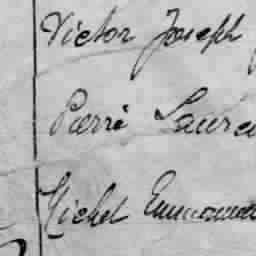 Victor Joseph
Pierre Laure
Michel Emmanuel